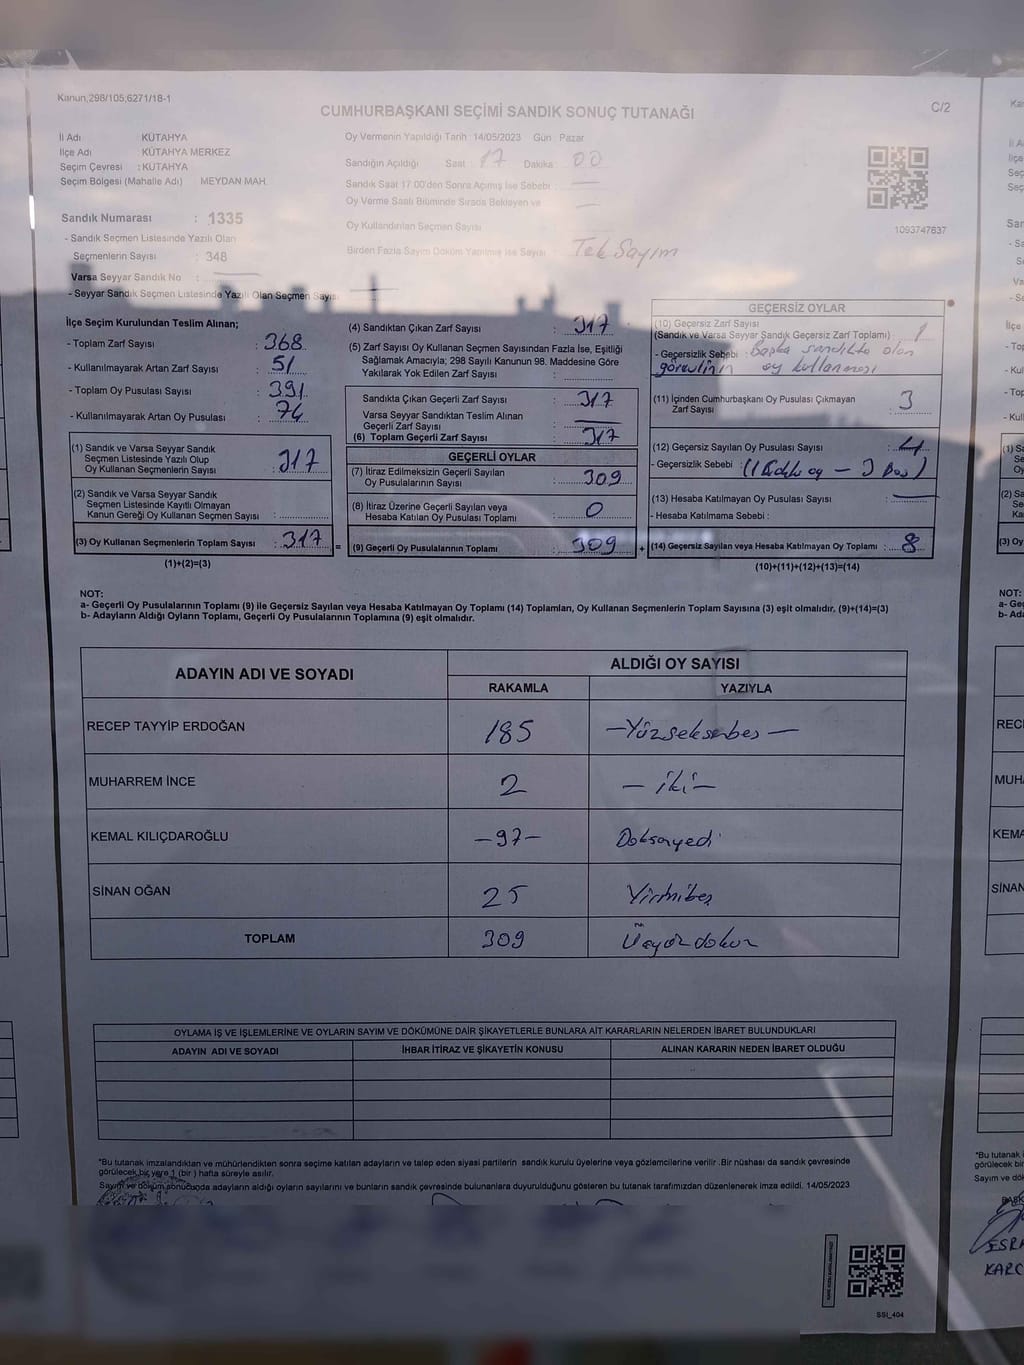 Kanun,298/105,6271/18-1
CUMHURBAŞKANI SEÇİMİ SANDIK SONUÇ TUTANAĞI
C/2
İl Adı KÜTAHYA
İlçe Adı KÜTAHYA MERKEZ
Seçim Çevresi : KÜTAHYA
Seçim Bölgesi (Mahalle Adı) MEYDAN MAH.
Oy Vermenin Yapıldığı Tarih 14/05/2023 Gün : Pazar
Sandığın Açıldığı Saat : 17 Dakika : 00
Sandık Saat 17:00'den Sonra Açılmış İse Sebebi :
Oy Verme Saati Bitiminde Sırada Bekleyen ve
Oy Kullandırılan Seçmen Sayısı
Birden Fazla Sayım Döküm Yapılmış İse Sayısı : Tek Sayım
1093747837
Sandık Numarası : 1335
- Sandık Seçmen Listesinde Yazılı Olan
Seçmenlerin Sayısı : 348
Varsa Seyyar Sandık No :
- Seyyar Sandık Seçmen Listesinde Yazılı Olan Seçmen Sayısı
İlçe Seçim Kurulundan Teslim Alınan;
- Toplam Zarf Sayısı : 368
- Kullanılmayarak Artan Zarf Sayısı : 51
- Toplam Oy Pusulası Sayısı : 391
- Kullanılmayarak Artan Oy Pusulası : 74
(1) Sandık ve Varsa Seyyar Sandık
Seçmen Listesinde Yazılı Olup
Oy Kullanan Seçmenlerin Sayısı : 317
(2) Sandık ve Varsa Seyyar Sandık
Seçmen Listesinde Kayıtlı Olmayan
Kanun Gereği Oy Kullanan Seçmen Sayısı :
(3) Oy Kullanan Seçmenlerin Toplam Sayısı : 317 =
(1)+(2)=(3)
(4) Sandıktan Çıkan Zarf Sayısı : 317
(5) Zarf Sayısı Oy Kullanan Seçmen Sayısından Fazla İse, Eşitliği
Sağlamak Amacıyla; 298 Sayılı Kanunun 98. Maddesine Göre
Yakılarak Yok Edilen Zarf Sayısı :
Sandıkta Çıkan Geçerli Zarf Sayısı : 317
Varsa Seyyar Sandıktan Teslim Alınan
Geçerli Zarf Sayısı :
(6) Toplam Geçerli Zarf Sayısı : 317
GEÇERLİ OYLAR
(7) İtiraz Edilmeksizin Geçerli Sayılan
Oy Pusulalarının Sayısı : 309
(8) İtiraz Üzerine Geçerli Sayılan veya
Hesaba Katılan Oy Pusulası Toplamı : 0
(9) Geçerli Oy Pusulalarının Toplamı : 309 +
GEÇERSİZ OYLAR
(10) Geçersiz Zarf Sayısı
(Sandık ve Varsa Seyyar Sandık Geçersiz Zarf Toplamı) : 1
- Geçersizlik Sebebi : Başka sandıkta olan
görevlinin oy kullanması
(11) İçinden Cumhurbaşkanı Oy Pusulası Çıkmayan
Zarf Sayısı : 3
(12) Geçersiz Sayılan Oy Pusulası Sayısı : 4
- Geçersizlik Sebebi : (1 oy - 3 Boş)
(13) Hesaba Katılmayan Oy Pusulası Sayısı :
- Hesaba Katılmama Sebebi :
(14) Geçersiz Sayılan veya Hesaba Katılmayan Oy Toplamı : 8
(10)+(11)+(12)+(13)=(14)
NOT:
a- Geçerli Oy Pusulalarının Toplamı (9) ile Geçersiz Sayılan veya Hesaba Katılmayan Oy Toplamı (14) Toplamları, Oy Kullanan Seçmenlerin Toplam Sayısına (3) eşit olmalıdır, (9)+(14)=(3)
b- Adayların Aldığı Oyların Toplamı, Geçerli Oy Pusulalarının Toplamına (9) eşit olmalıdır.
ADAYIN ADI VE SOYADI
ALDIĞI OY SAYISI
RAKAMLA YAZIYLA
RECEP TAYYİP ERDOĞAN 185 -Yüzseksenbeş-
MUHARREM İNCE 2 - iki -
KEMAL KILIÇDAROĞLU -97- Doksanyedi
SİNAN OĞAN 25 Yirmibeş
TOPLAM 309 Üçyüzdokuz
OYLAMA İŞ VE İŞLEMLERİNE VE OYLARIN SAYIM VE DÖKÜMÜNE DAİR ŞİKAYETLERLE BUNLARA AİT KARARLARIN NELERDEN İBARET BULUNDUKLARI
ADAYIN ADI VE SOYADI İHBAR İTİRAZ VE ŞİKAYETİN KONUSU ALINAN KARARIN NEDEN İBARET OLDUĞU
*Bu tutanak imzalandıktan ve mühürlendikten sonra seçime katılan adayların ve talep eden siyasi partilerin sandık kurulu üyelerine veya gözlemcilerine verilir .Bir nüshası da sandık çevresinde
görülecek bir yere 1 (bir) hafta süreyle asılır.
Sayım ve döküm sonucunda adayların aldığı oyların sayılarını ve bunların sandık çevresinde bulunanlara duyurulduğunu gösteren bu tutanak tarafımızdan düzenlenerek imza edildi. 14/05/2023
SSI_404